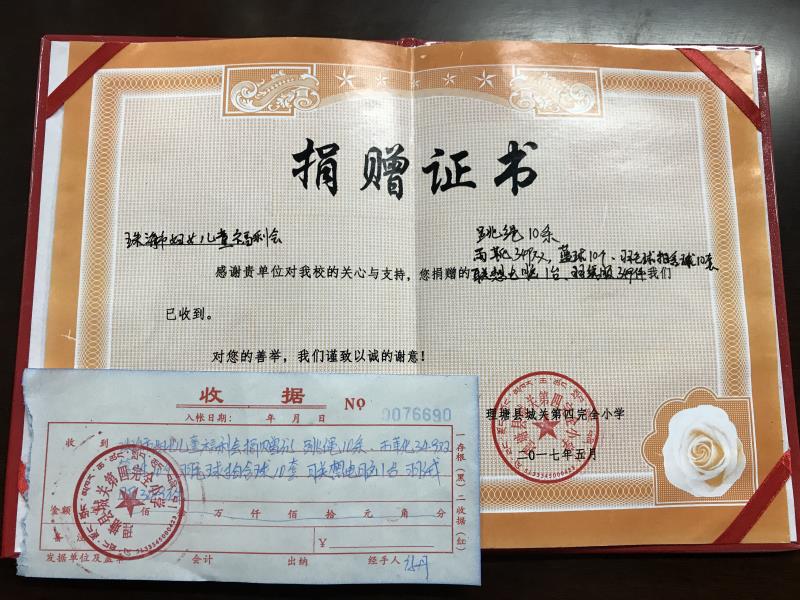 捐赠证书
珠海市妇女儿童福利会
跳绳10条
雨靴349双,蓝球10个、羽毛球拍含球10套
感谢贵单位对我校的关心与支持,您捐赠的联想电脑1台、羽绒服349件我们
已收到。
对您的善举,我们谨致以诚的谢意!
理塘县城关第四完全小学
二〇一七年五月
收据
入帐日期: 年 月 日
NO
0076690
收到
跳绳10条、雨靴349双
羽毛球拍含球10套 联想电脑1台 羽绒
金额 佰 万 仟 佰 拾 元 角 分
¥
发据单位及盖章 会计 出纳 经手人
一存根(黑)二收据(红)
理塘县城关第四完全小学